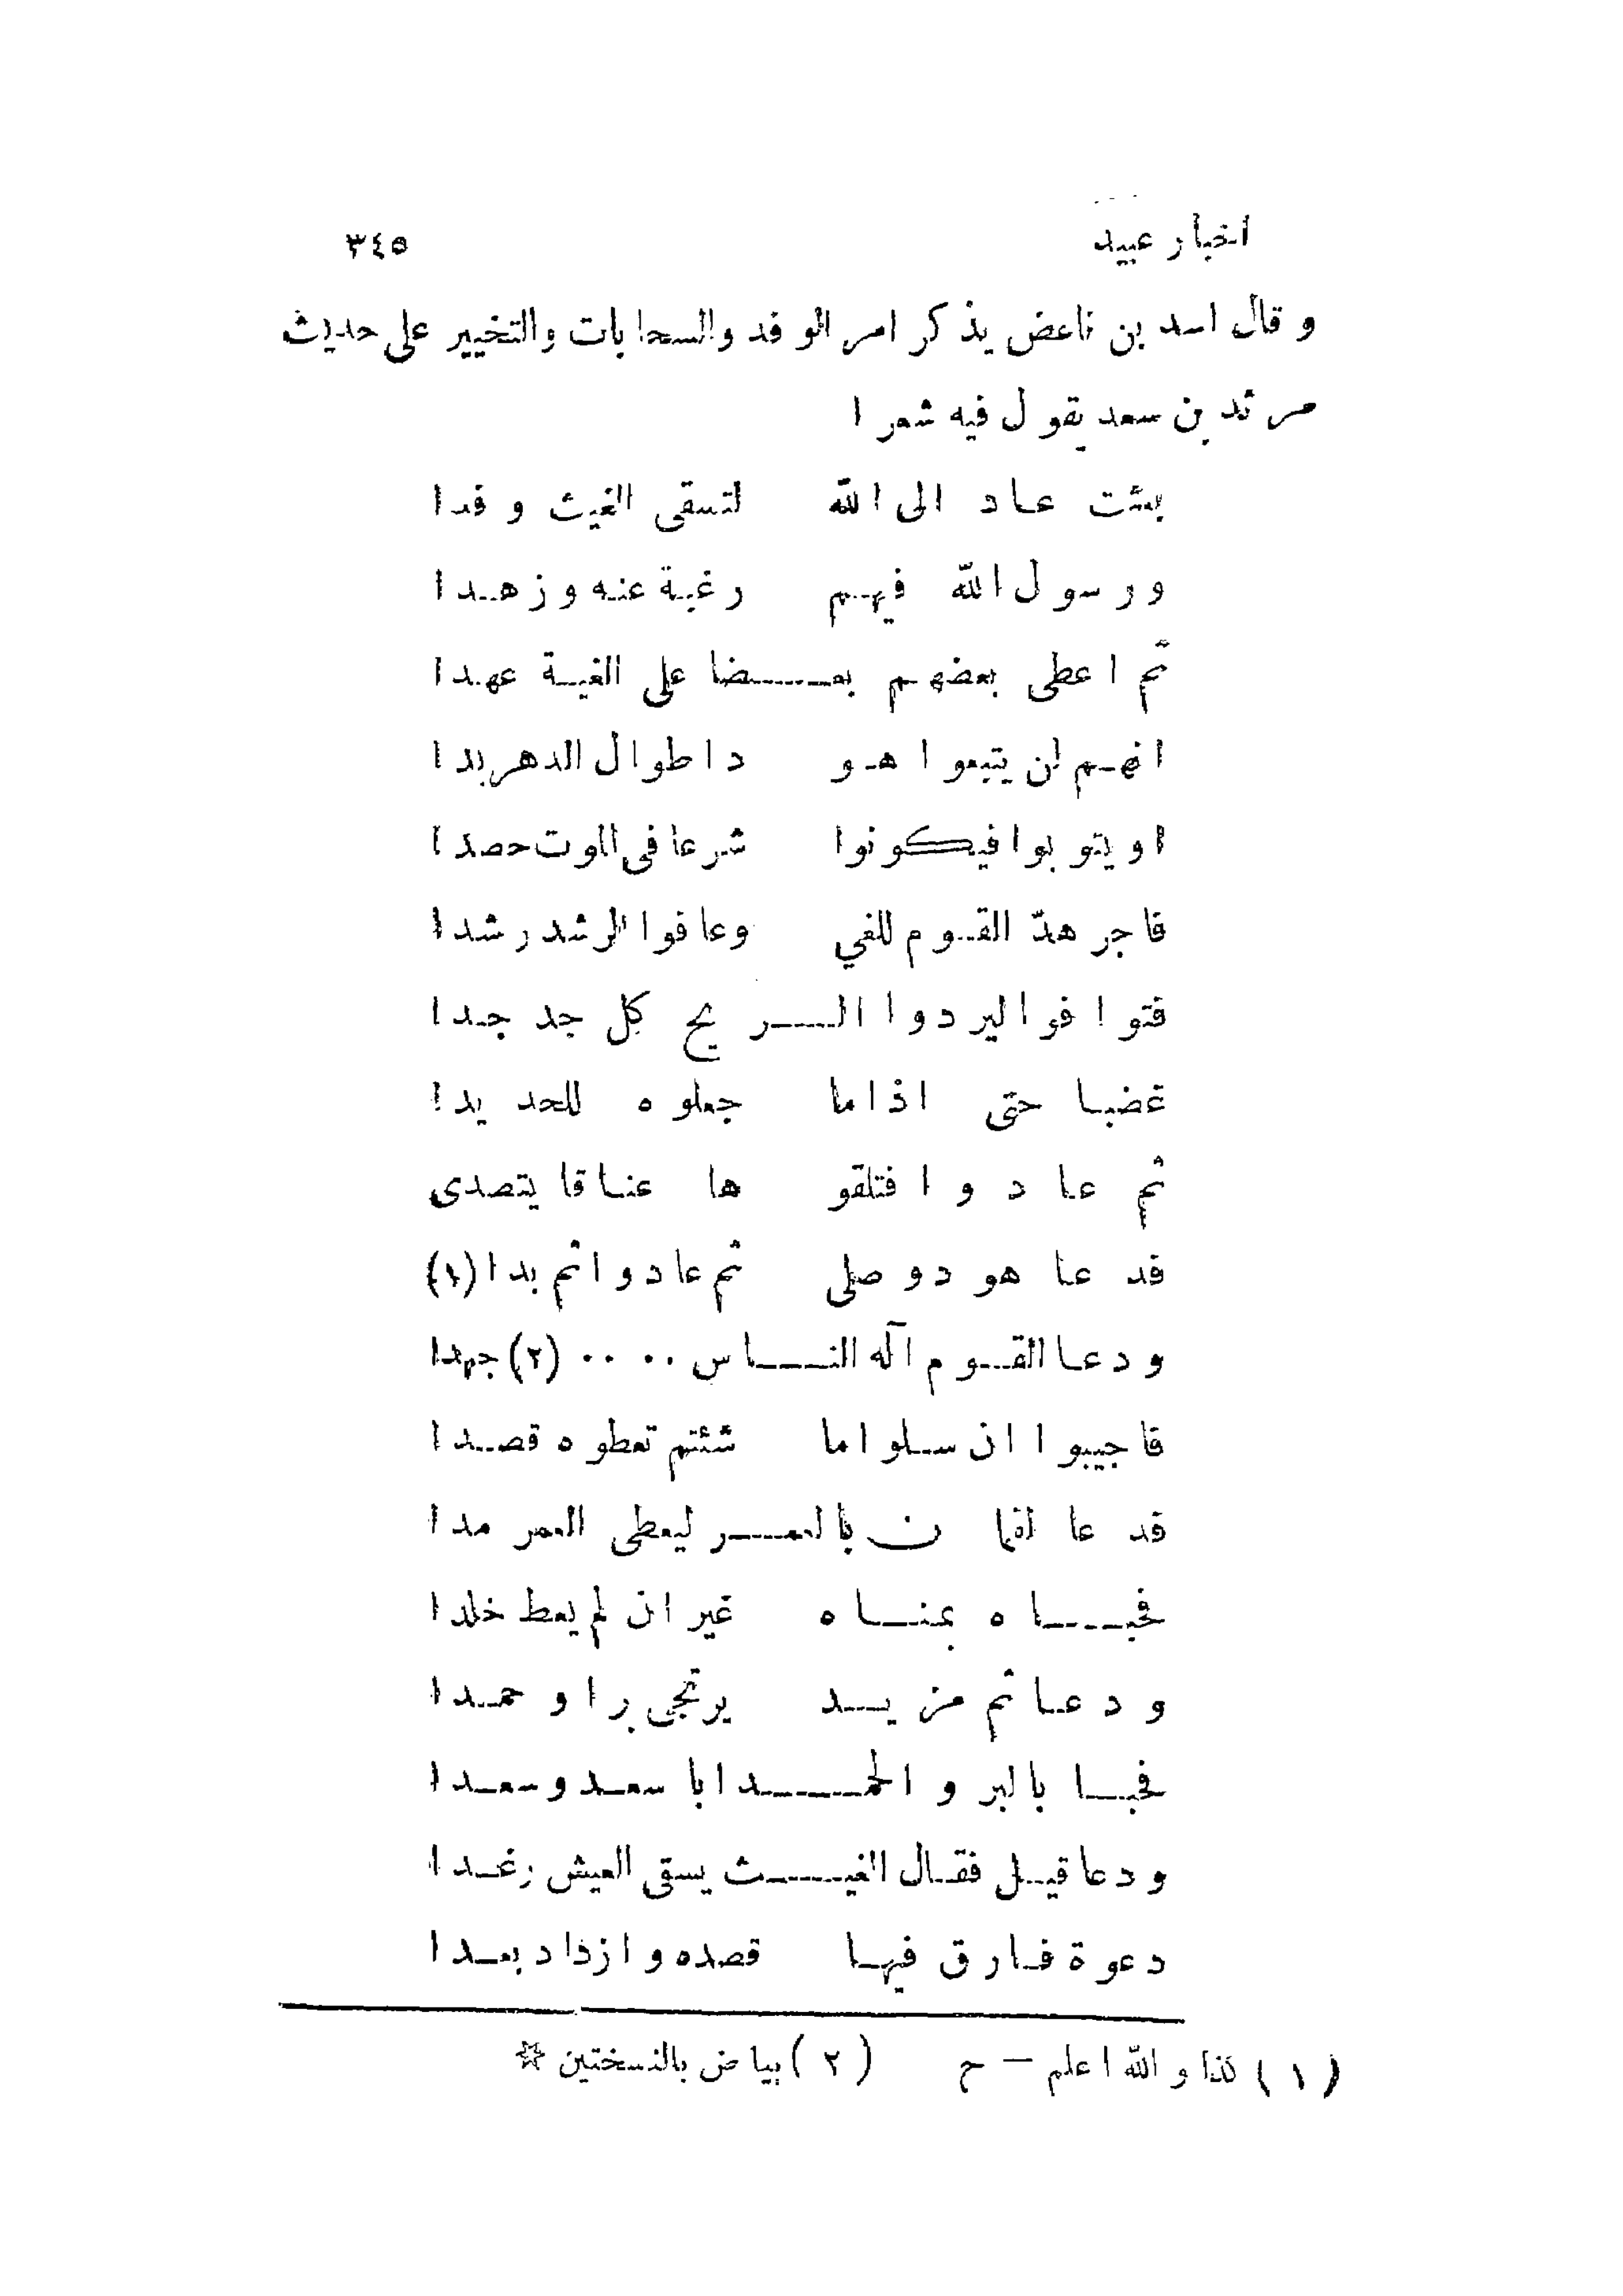 اخبار عبيد ٣٤٥
و قال اسد بن ناعض يذكر امر الوفد والسحابات والتخيير على حديث
مرثد بن سعد يقول فيه شعرا
بعثت عاد الى الله لتسقى الغيث وفدا
ورسول الله فيهم رغبة عنه وزهدا
ثم اعطى بعضهم بعضا على الغية عهدا
انهم لن يتبعوا هو دا طوال الدهر بدا
او يتوبوا فيكونوا شرعا فى الموت حصدا
فاجرهدّ القوم للغي وعافوا الرشد رشدا
فتوافوا ليردوا الريح كل جد جدا
غضبا حتى اذا ما جعلوه للحد يدا
ثم عادوا فتلقو ها عناقا يتصدى
فدعا هود وصلى ثم عادوا ثم بدا (١)
ودعا القوم آله الناس .. .. (٢) جهدا
فاجيبوا ان سلوا ما شئتم تعطوه قصدا
فدعا لقمان بالعمر ليعطى العمر مدا
فحباه بمناه غير ان لم يعط خلدا
ودعا ثم مزيد يرتجى برا وحمدا
فحبا بالبر والحمد ابا سعد وسعدا
ودعا قيل فقال الغيث يسقى العيش رغدا
دعوة فارق فيها قصده وازداد بعدا
(١) كذا والله اعلم – ح (٢) بياض بالنسختين ☆